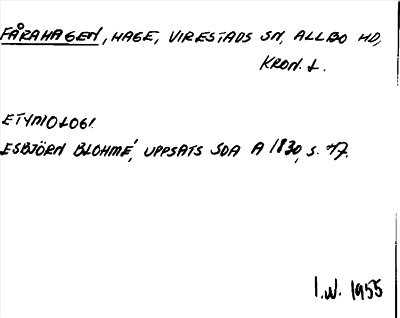 FÅRAHAGEN, HAGE, VIRESTADS SN, ALLBO HD,
KRON. L.
ETYMOLOGI
ESBJÖRN BLOHMÉ, UPPSATS SOA A 1830, s. 47.
I.W. 1955